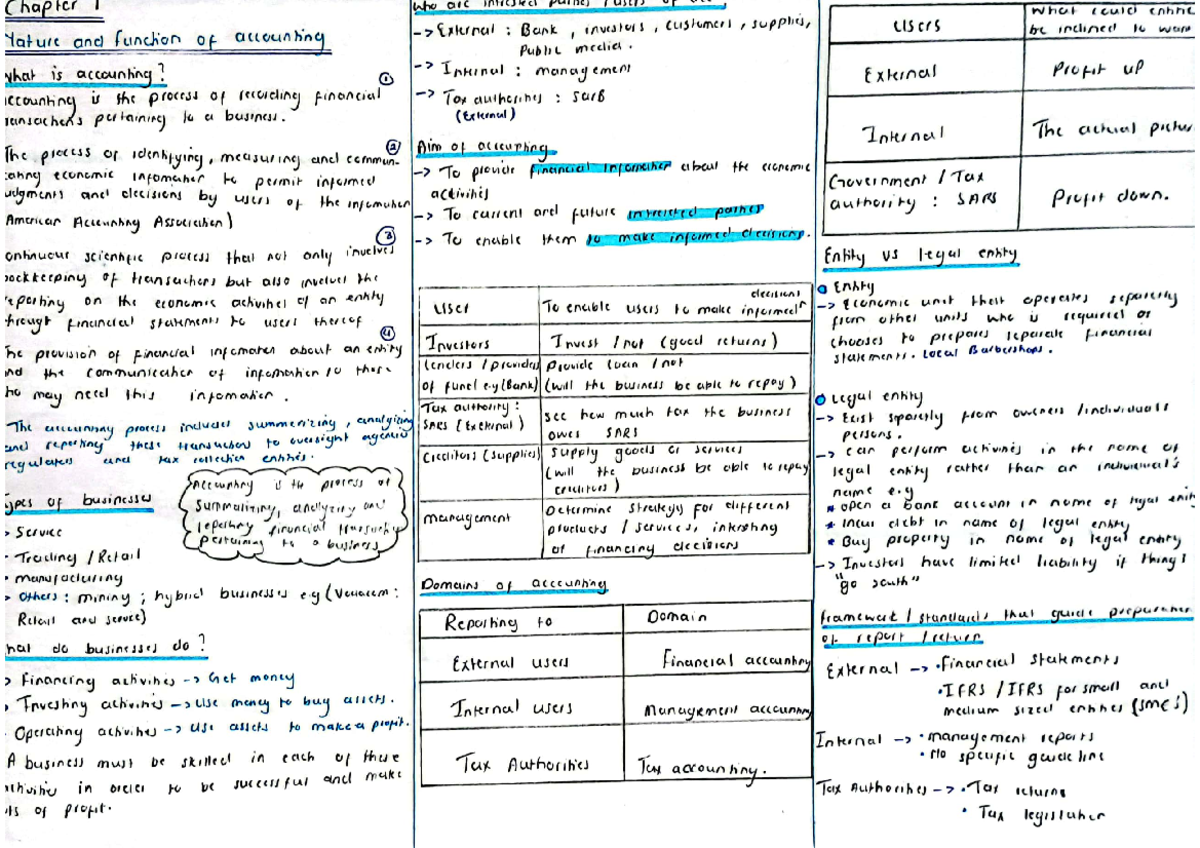 Chapter 1
Nature and function of accounting
What is accounting?
①
accounting is the process of recording financial
transactions pertaining to a business.
②
The process of identifying, measuring and commun-
cating economic information to permit informed
judgments and decisions by users of the information
American Accounting Association)
③
continuous scientific process that not only involves
bookkeeping of transactions but also involves the
reporting on the economic activities of an entity
through financial statements to users thereof
④
The provision of financial information about an entity
and the communication of information to those
who may need this information.
The accounting process includes summerizing, analyzing
and reporting these transaction to oversight agencies
regulators and tax collection entities.
Accounting is the process of
summarizing, analyzing and
reporting financial transactions
pertaining to a business
Types of businesses
> Service
- Trading / Retail
• manufacturing
> Others: mining; hybrid businesses e.g (Vodacom:
Retail and service)
What do businesses do?
> Financing activities -> Get money
> Investing activities -> Use money to buy assets.
• Operating activities -> Use assets to make a profit.
A business must be skilled in each of these
activities in order to be successful and make
lots of profit.
who are intrested parties / users of
-> External: Bank, investors, customers, supplies,
Public media.
-> Internal: management
-> Tax authorities: SARB
(External)
Aim of accounting
-> To provide financial information about the economic
activities
-> To current and future intrested parties
-> To enable them to make informed decisions.
User
To enable users to make informed decisions
Investors
Invest / not (good returns)
Lenders / providers
of fund e.g (Bank)
Provide loan / not
(will the business be able to repay)
Tax authority:
SARS (External)
see how much tax the business
owes SARS
Creditors (supplies)
Supply goods or services
(will the business be able to repay
creditors)
management
Determine strategy for different
products / services, intersting
of financing decisions
Domains of accounting
Reporting to
Domain
External users
Financial accounting
Internal users
Management accounting
Tax Authorities
Tax accounting.
Users
What could entitie
be inclined to want
External
Profit up
Internal
The actual picture
Government / Tax
authority: SARS
Profit down.
Entity vs legal entity
Entity
-> Economic unit that operates seperetly
from other units who is required or
chooses to prepares separate financial
statements. Local Barbershops.
Legal entity
-> Exist sparetly from owners / individuals
persons.
-> can perform activities in the name of
legal entity rather than an individual's
name e.g
* open a bank account in name of legal entity
* Incur debt in name of legal entity
* Buy property in name of legal entity
-> Investors have limited liability if things
"go south"
Framework / standards that guide preparation
of report / return
External -> • Financial statements
• IFRS / IFRS for small and
medium sized entities (SMEs)
Internal -> • management reports
• No specific guideline
Tax Authorities -> • Tax returns
• Tax legislation